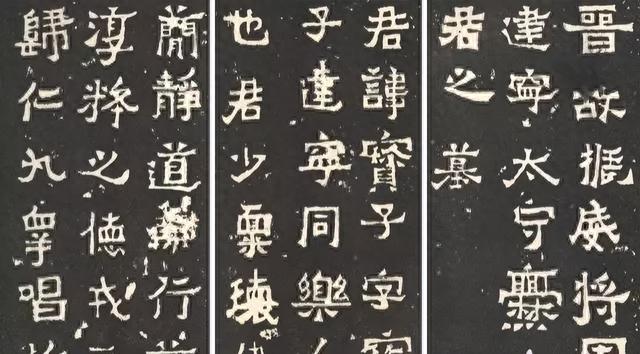 晉故振威將
建寧太守爨
君之墓
君諱寶子字寶
子建寧同樂
也君少稟瓌
簡靜道行
淳粹之德戎
歸仁九皋唱